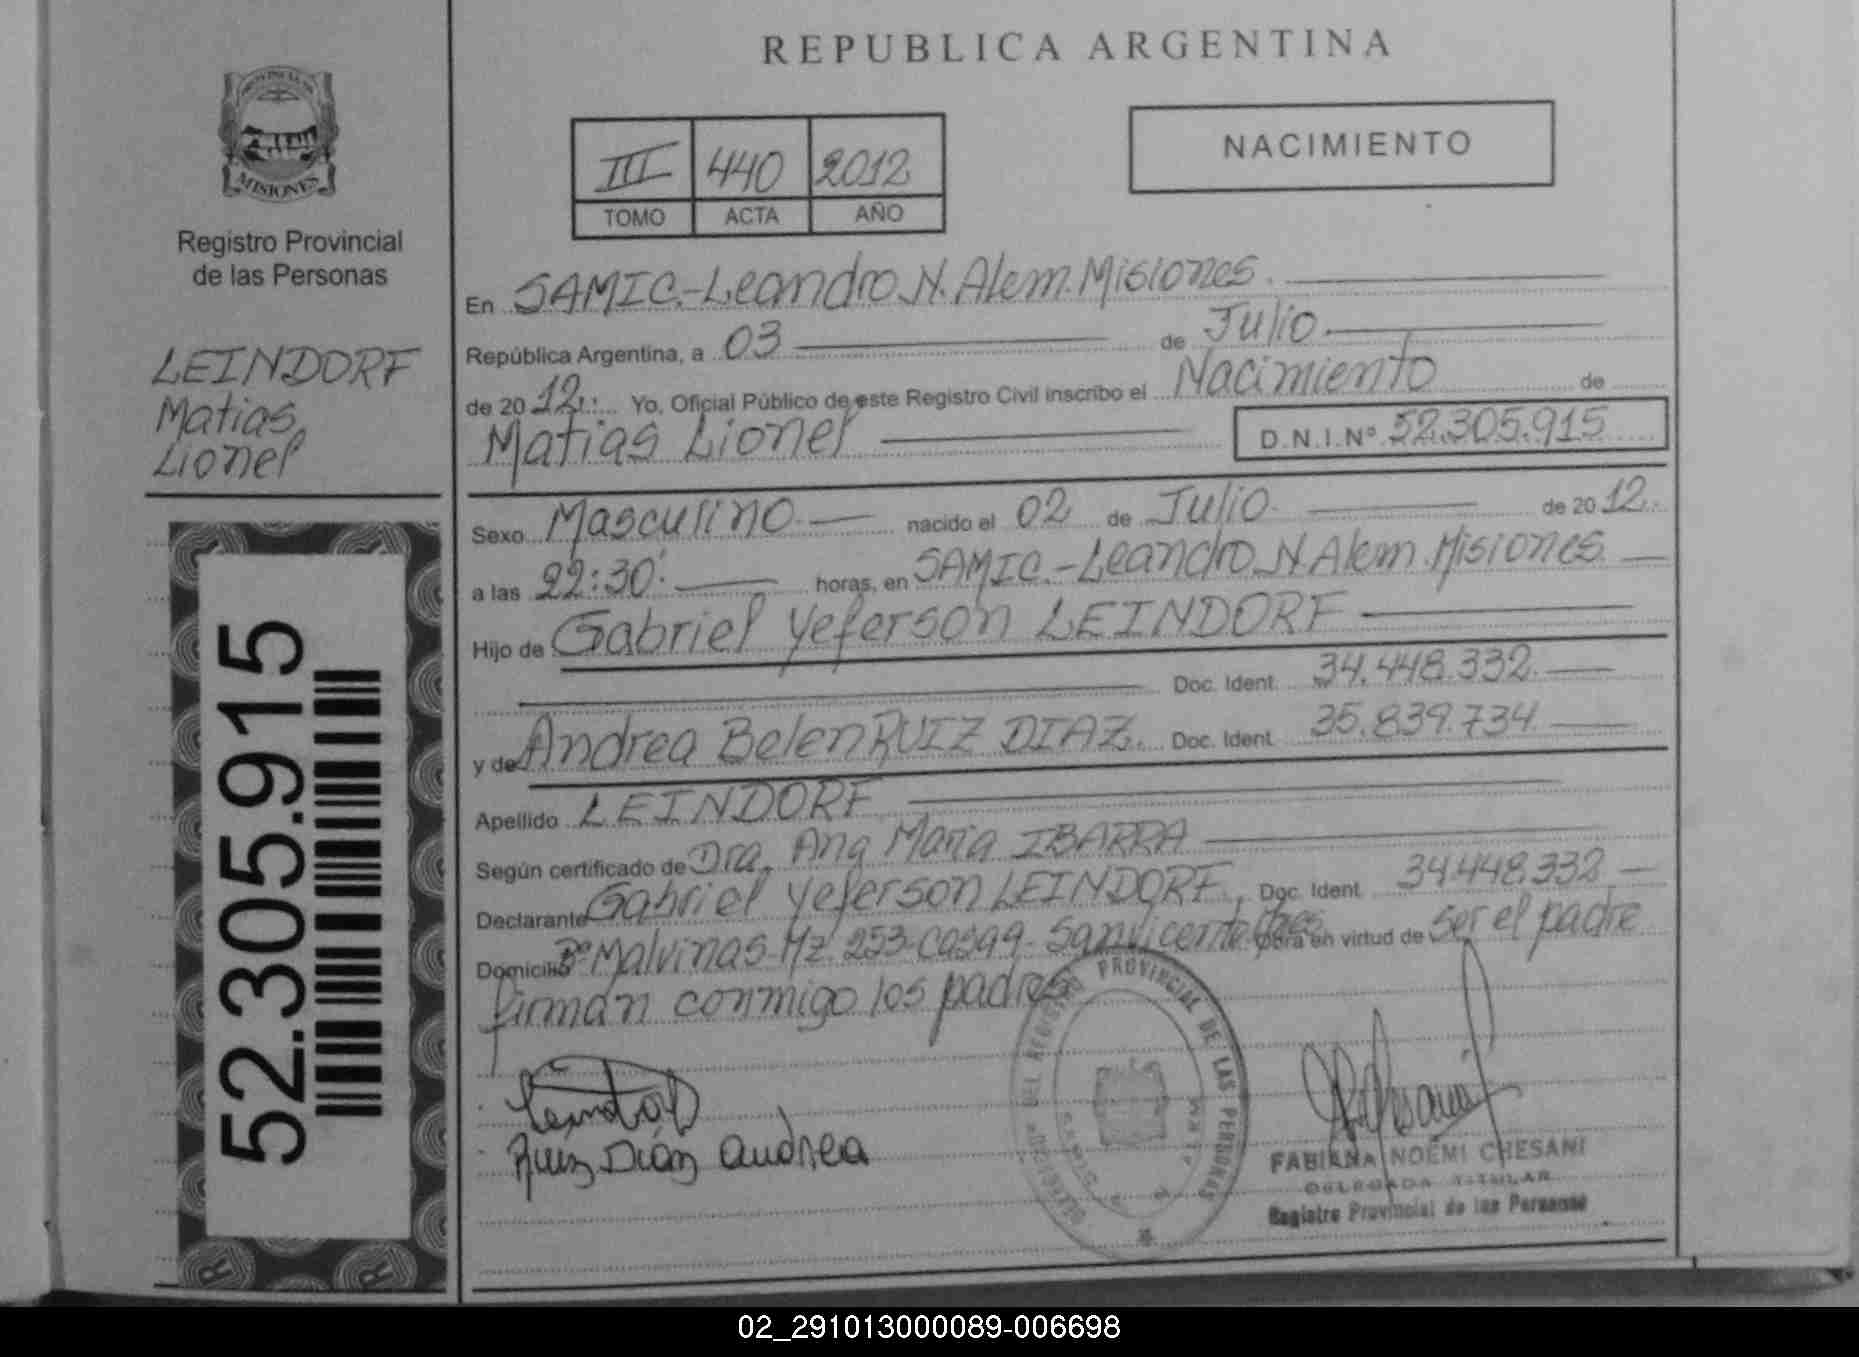 REPUBLICA ARGENTINA
MISIONES
Registro Provincial
de las Personas
LEINDORF
Matias
Lionel
52.305.915
III 440 2012
TOMO ACTA AÑO
NACIMIENTO
En SAMIC.-Leandro N. Alem. Misiones.
República Argentina, a 03 de Julio.
de 2012. Yo, Oficial Público de este Registro Civil inscribo el Nacimiento de
Matias Lionel D.N.I.Nº 52.305.915
Sexo Masculino nacido el 02 de Julio. de 2012.
a las 22:30. horas, en SAMIC.-Leandro N Alem. Misiones.
Hijo de Gabriel Yeferson LEINDORF
Doc. Ident. 34.448.332.
y de Andrea Belen RUIZ DIAZ. Doc. Ident. 35.839.734
Apellido LEINDORF
Según certificado de Dra. Ana Maria IBARRA
Declarante Gabriel Yeferson LEINDORF, Doc. Ident. 34.448.332
Domicilio Bº Malvinas Mz. 253-Casa 9. San Vicente Obra en virtud de Ser el padre
firman conmigo los padres
DEL REGISTRO PROVINCIAL DE LAS PERSONAS
Ruiz Diáz Andrea
FABIANA NOEMI CHESANI
DELEGADA TITULAR
Registro Provincial de las Personas
02_291013000089-006698